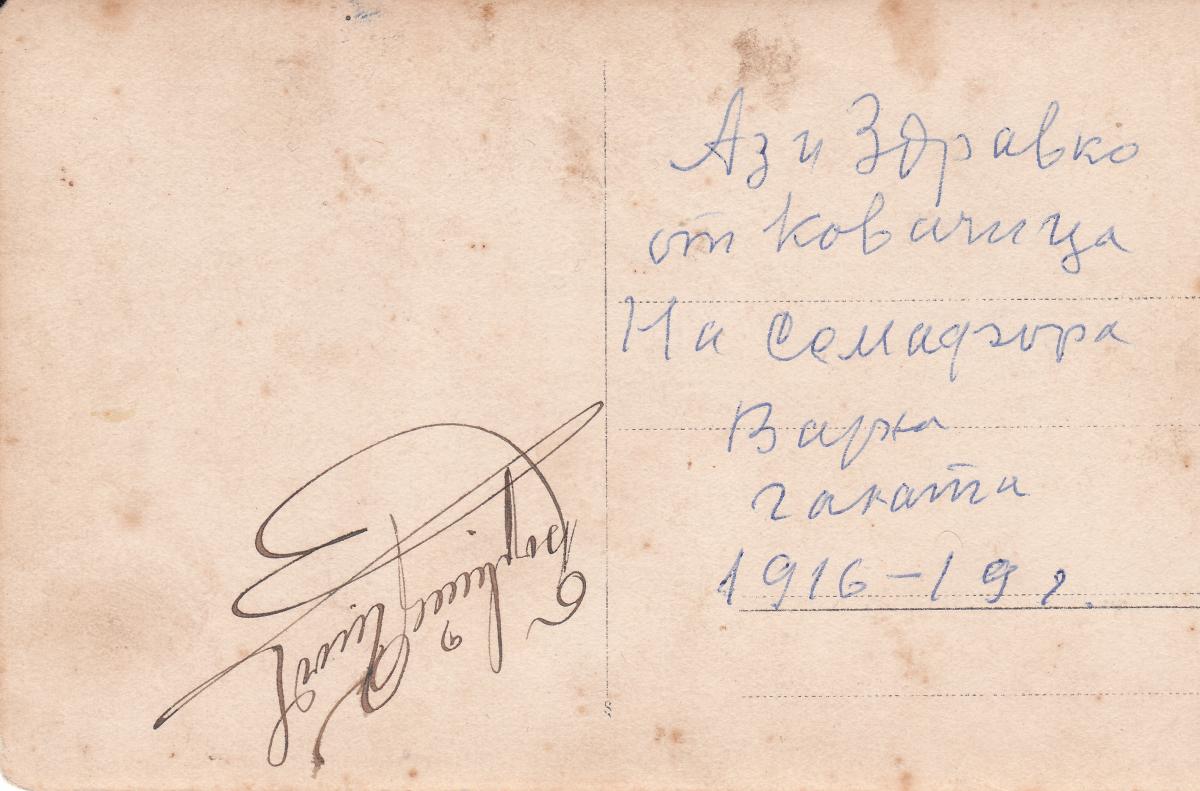 Аз и Здравко
от Ковачица
На Семафора
Варна
гаката
1916–19 г.